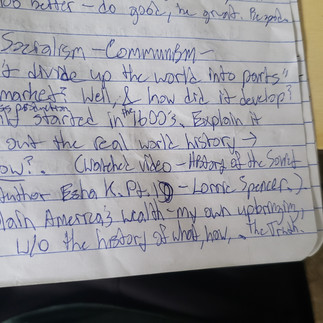 better - do good, he
Socialism - Communism -
't divide up the world into parts"
market? Well, & how did it develop?
production
started in the 1600's. Explain it
out the real world history →
ow?. (Watched video - History of the Soviet
Author Esha K. Pt. - Lorrie Spencer.)
lain America's wealth - my own upbringing,
w/o the history of what, how, the Truth.